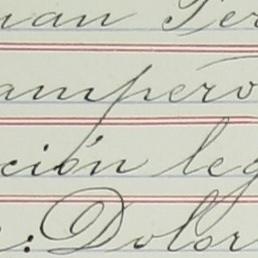 uan Per
ampero
ción leg
: Dolor